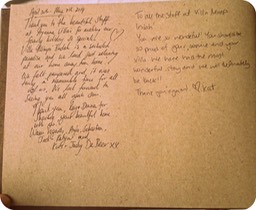 April 26 - May 4th 2019
Thank you to the beautiful staff
at Villa for making our
family holiday so special!
Villa is a secluded
paradise and we loved just relaxing
at our home away from home.
We felt pampered and it was
truly a memorable time for all
of us. We look forward to
seeing you all again soon.
Thank you, for
sharing your beautiful home
with us.
Warm regards, Sebastian,
Jack,
Kate + Judy De Boer xx
To all the Staff at Villa
You are so wonderful! You should be
so proud of your service and your
villa. We have had the most
wonderful stay and we will definitely
be back!!
Thank you again! Kat.